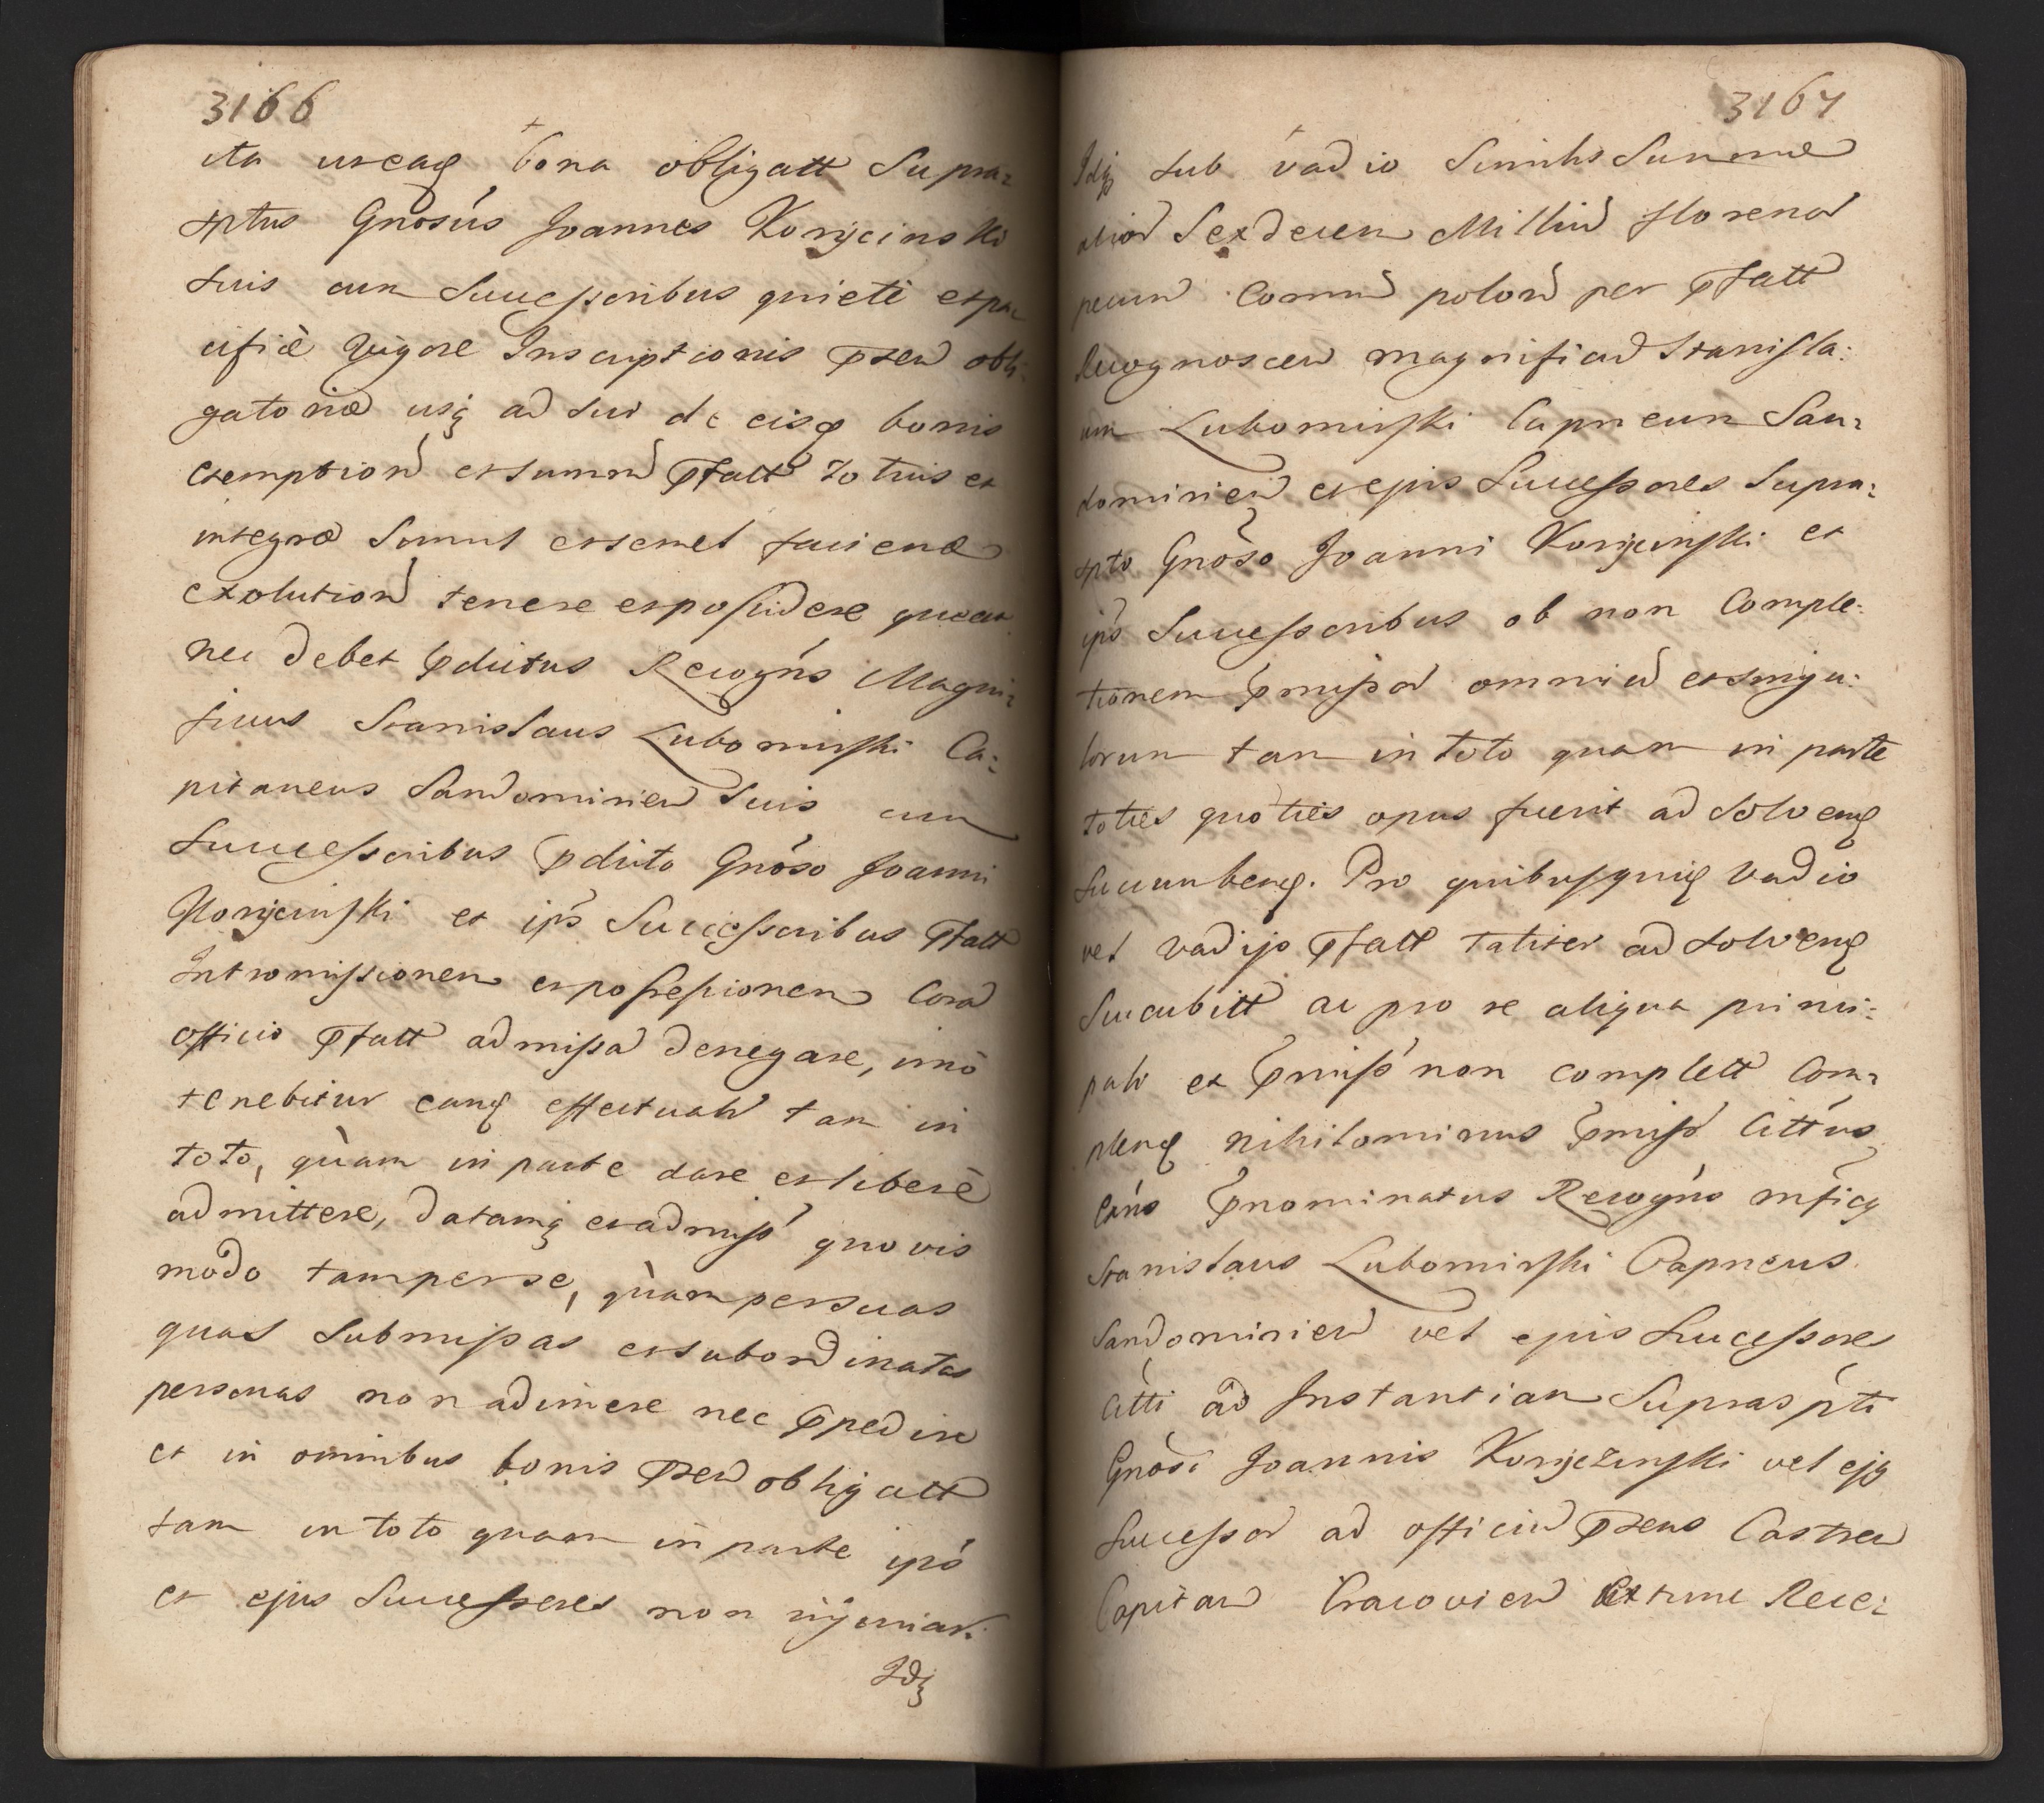 3166
ita ut eaq bona obligatt Supra-
sptus Gnosus Joannes Korÿcinski
suis cum Successoribus quietè et pa-
cificè vigore Inscriptionis pren obli-
gatoriæ usq ad sui de eisq bonis
exemption et summ pfatt totius et
integræ Simul et semel faciend
exolution tenere et possidere queat
nec debet pdictus Recogns Magni-
ficus Stanislaus Lubomirski Ca:
pitaneus Sandomirien suis cum
Successoribus pdicto Gnoso Joanni
Korÿcinski et ips Successoribus pfatt
Intromissionem et possessionem Cora
officio pfatt admissa denegare, imò
tenebitur eanq effectualr tam in
toto, quàm in parte dare et liberè
admittere, datamq et admiss quovis
modo tam per se, quàm per suas
quas Submissas et subordinatas
personas non adimere nec ppedire
et in omnibus bonis pren obligatt
tam in toto quam in parte ips
et ejus Successores non injuriari.
Idq
3167
Idq sub vadio Similis Summæ
aliar Sexdecem Milliu florenor
pecun Commu polon per pfatt
Recognoscen magnificu Stanisla:
um Lubomirski Capneum San-
domirien et ejus Successores Supra:
spto Gnoso Joanni Korÿcinski et
ips Successoribus ob non Comple:
tionem pmissor omniu et singu:
lorum tam in toto quam in parte
toties quoties opus fuerit ad Solvenq
succumbenq. Pro quibusquiq vadio
vel vadijs pfatt taliter ad solvenq
Succubitt ac pro re aliqua princi:
pali ex pmiss non complett Com-
plenq nihilominus pmiss Cittus
pnominatus Recogns mficq
Stanislaus Lubomirski Capneus
Sandomirien vel ejus Sucessores
Citti ad Instantiam Supraspti
Gnosi Joannis Korÿczinski vel ejq
Sucessor ad officiu prens Castren
Capitan Cracovien Ex tunc Rece: